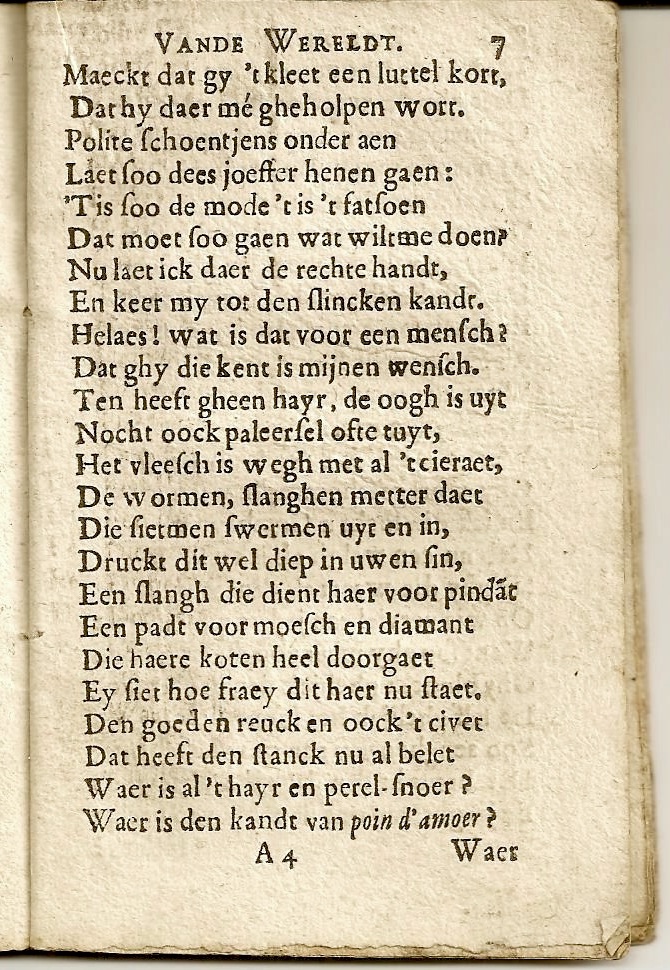 VANDE WERELDT. 7
Maeckt dat gy 't kleet een luttel kort,
Dat hy daer mé gheholpen wort.
Polite ſchoentjens onder aen
Laet ſoo dees joeffer henen gaen:
'Tis ſoo de mode 't is 't fatſoen
Dat moet ſoo gaen wat wiltme doen?
Nu laet ick daer de rechte handt,
En keer my tot den ſlincken kandt.
Helaes! wat is dat voor een menſch?
Dat ghy die kent is mijnen wenſch.
Ten heeft gheen hayr, de oogh is uyt
Nocht oock paleerſel ofte tuyt,
Het vleeſch is wegh met al 't cieraet,
De wormen, ſlanghen metter daet
Die ſietmen ſwermen uyt en in,
Druckt dit wel diep in uwen ſin,
Een ſlangh die dient haer voor pindãt
Een padt voor moeſch en diamant
Die haere koten heel doorgaet
Ey ſiet hoe fraey dit haer nu ſtaet.
Den goeden reuck en oock 't civet
Dat heeft den ſtanck nu al belet
Waer is al 't hayr en perel-ſnoer?
Waer is den kandt van poin d'amoer?
A 4 Waer